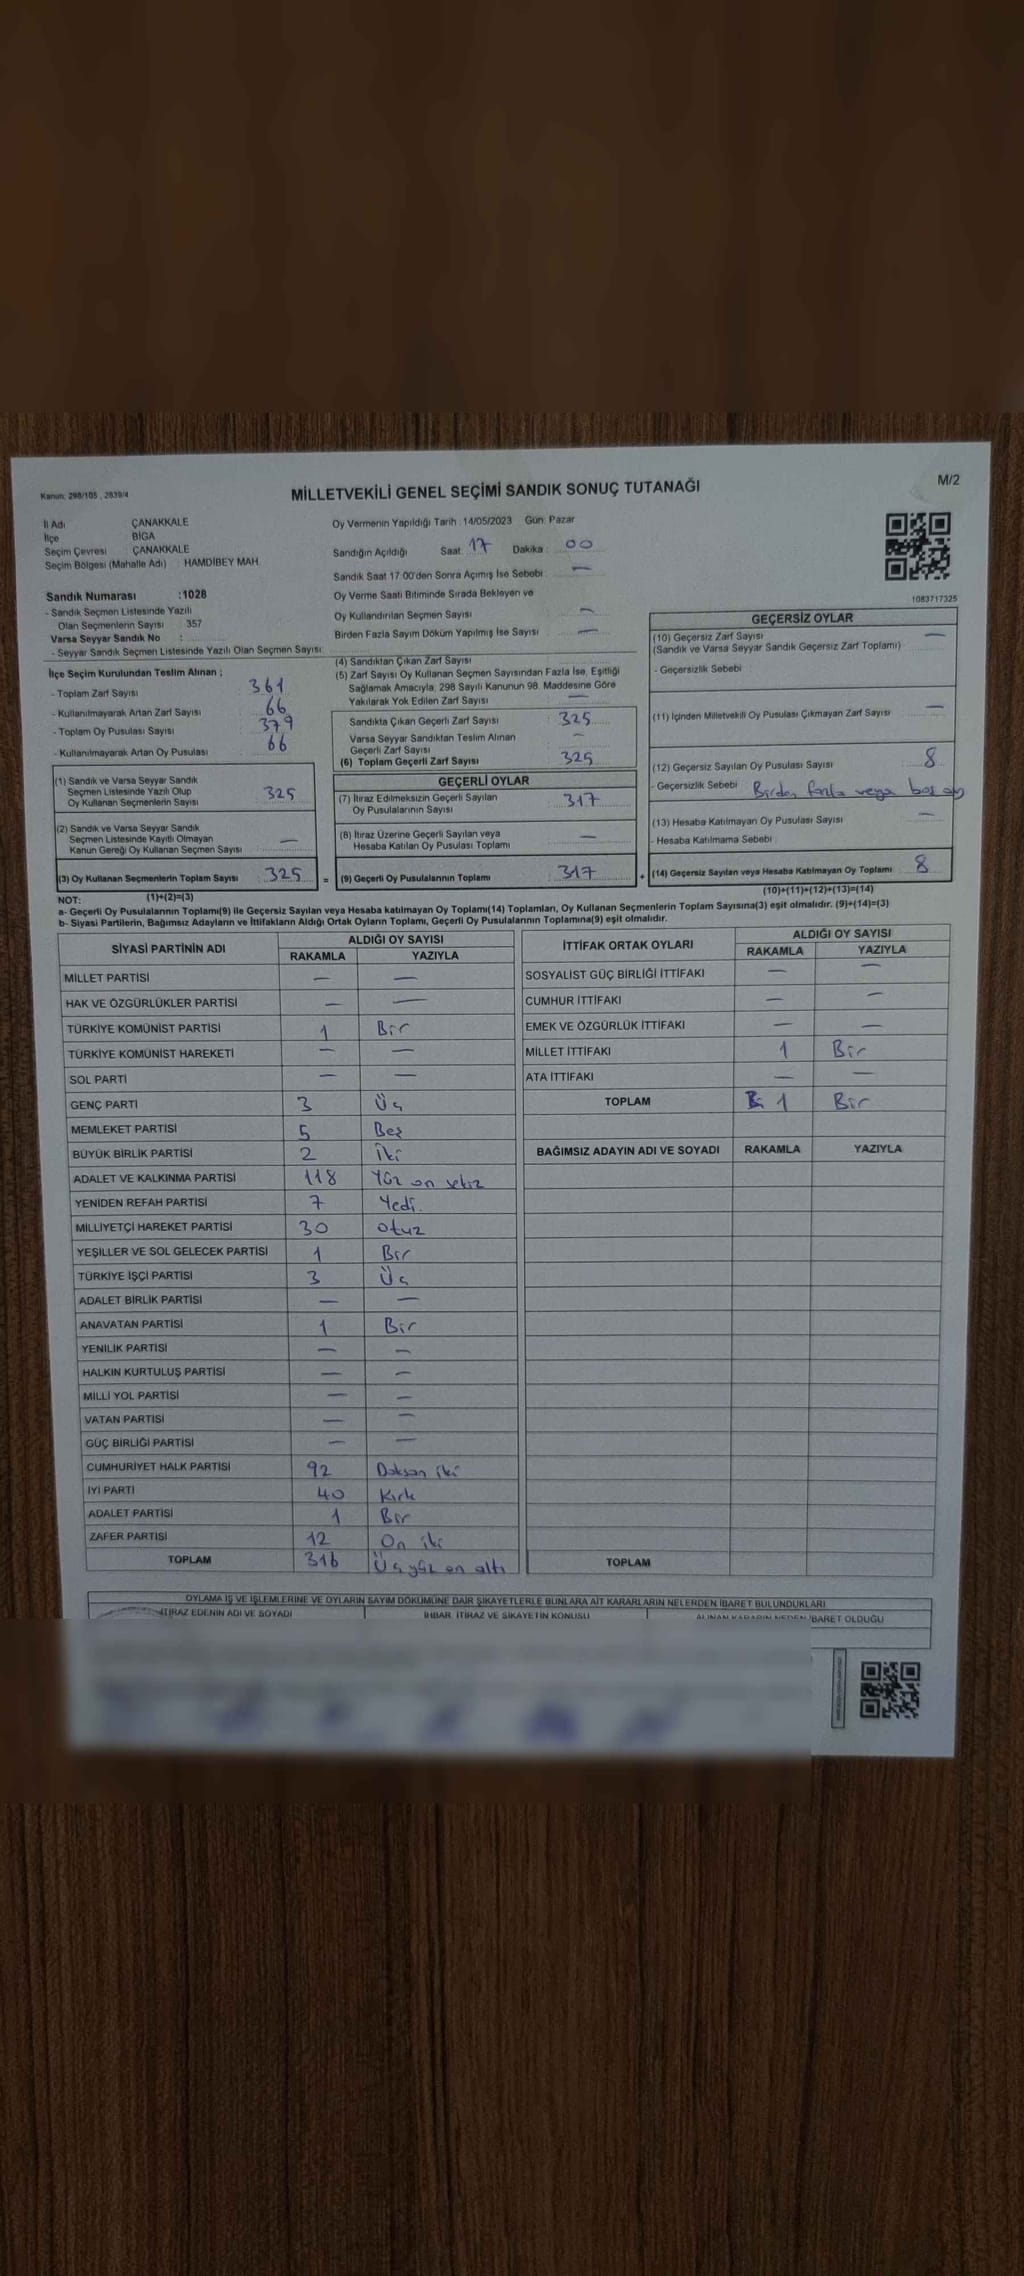 Kanun: 298/105 , 2839/4
MİLLETVEKİLİ GENEL SEÇİMİ SANDIK SONUÇ TUTANAĞI
M/2
İl Adı : ÇANAKKALE
İlçe : BİGA
Seçim Çevresi : ÇANAKKALE
Seçim Bölgesi (Mahalle Adı) : HAMDİBEY MAH.
Sandık Numarası :1028
- Sandık Seçmen Listesinde Yazılı
Olan Seçmenlerin Sayısı : 357
Varsa Seyyar Sandık No :
- Seyyar Sandık Seçmen Listesinde Yazılı Olan Seçmen Sayısı:
Oy Vermenin Yapıldığı Tarih :14/05/2023 Gün: Pazar
Sandığın Açıldığı Saat: 17 Dakika : 00
Sandık Saat 17:00'den Sonra Açımış İse Sebebi : —
Oy Verme Saati Bitiminde Sırada Bekleyen ve
Oy Kullandırılan Seçmen Sayısı : —
Birden Fazla Sayım Döküm Yapılmış İse Sayısı : —
1083717325
İlçe Seçim Kurulundan Teslim Alınan ;
- Toplam Zarf Sayısı : 361
- Kullanılmayarak Artan Zarf Sayısı : 66
- Toplam Oy Pusulası Sayısı : 379
- Kullanılmayarak Artan Oy Pusulası : 66
(1) Sandık ve Varsa Seyyar Sandık
Seçmen Listesinde Yazılı Olup
Oy Kullanan Seçmenlerin Sayısı : 325
(2) Sandık ve Varsa Seyyar Sandık
Seçmen Listesinde Kayıtlı Olmayan
Kanun Gereği Oy Kullanan Seçmen Sayısı : —
(3) Oy Kullanan Seçmenlerin Toplam Sayısı : 325
(1)+(2)=(3)
(4) Sandıktan Çıkan Zarf Sayısı
(5) Zarf Sayısı Oy Kullanan Seçmen Sayısından Fazla İse, Eşitliği
Sağlamak Amacıyla, 298 Sayılı Kanunun 98. Maddesine Göre
Yakılarak Yok Edilen Zarf Sayısı : —
Sandıkta Çıkan Geçerli Zarf Sayısı : 325
Varsa Seyyar Sandıktan Teslim Alınan
Geçerli Zarf Sayısı : —
(6) Toplam Geçerli Zarf Sayısı : 325
GEÇERLİ OYLAR
(7) İtiraz Edilmeksizin Geçerli Sayılan
Oy Pusulalarının Sayısı : 317
(8) İtiraz Üzerine Geçerli Sayılan veya
Hesaba Katılan Oy Pusulası Toplamı : —
= (9) Geçerli Oy Pusulalarının Toplamı : 317
GEÇERSİZ OYLAR
(10) Geçersiz Zarf Sayısı : —
(Sandık ve Varsa Seyyar Sandık Geçersiz Zarf Toplamı)
- Geçersizlik Sebebi :
(11) İçinden Milletvekili Oy Pusulası Çıkmayan Zarf Sayısı : —
(12) Geçersiz Sayılan Oy Pusulası Sayısı : 8
- Geçersizlik Sebebi : Birden fazla veya boş oy
(13) Hesaba Katılmayan Oy Pusulası Sayısı : —
- Hesaba Katılmama Sebebi :
+ (14) Geçersiz Sayılan veya Hesaba Katılmayan Oy Toplamı : 8
(10)+(11)+(12)+(13)=(14)
NOT:
a- Geçerli Oy Pusulalarının Toplamı(9) ile Geçersiz Sayılan veya Hesaba katılmayan Oy Toplamı(14) Toplamları, Oy Kullanan Seçmenlerin Toplam Sayısına(3) eşit olmalıdır. (9)+(14)=(3)
b- Siyasi Partilerin, Bağımsız Adayların ve İttifakların Aldığı Ortak Oyların Toplamı, Geçerli Oy Pusulalarının Toplamına(9) eşit olmalıdır.
SİYASİ PARTİNİN ADI ALDIĞI OY SAYISI
RAKAMLA YAZIYLA
MİLLET PARTİSİ — —
HAK VE ÖZGÜRLÜKLER PARTİSİ — —
TÜRKİYE KOMÜNİST PARTİSİ 1 Bir
TÜRKİYE KOMÜNİST HAREKETİ — —
SOL PARTİ — —
GENÇ PARTİ 3 Üç
MEMLEKET PARTİSİ 5 Beş
BÜYÜK BİRLİK PARTİSİ 2 İki
ADALET VE KALKINMA PARTİSİ 118 Yüz on sekiz
YENİDEN REFAH PARTİSİ 7 Yedi.
MİLLİYETÇİ HAREKET PARTİSİ 30 otuz
YEŞİLLER VE SOL GELECEK PARTİSİ 1 Bir
TÜRKİYE İŞÇİ PARTİSİ 3 Üç
ADALET BİRLİK PARTİSİ — —
ANAVATAN PARTİSİ 1 Bir
YENİLİK PARTİSİ — —
HALKIN KURTULUŞ PARTİSİ — —
MİLLİ YOL PARTİSİ — —
VATAN PARTİSİ — —
GÜÇ BİRLİĞİ PARTİSİ — —
CUMHURİYET HALK PARTİSİ 92 Doksan iki
İYİ PARTİ 40 Kırk
ADALET PARTİSİ 1 Bir
ZAFER PARTİSİ 12 On iki
TOPLAM 316 Üç yüz on altı
İTTİFAK ORTAK OYLARI ALDIĞI OY SAYISI
RAKAMLA YAZIYLA
SOSYALİST GÜÇ BİRLİĞİ İTTİFAKI — —
CUMHUR İTTİFAKI — —
EMEK VE ÖZGÜRLÜK İTTİFAKI — —
MİLLET İTTİFAKI 1 Bir
ATA İTTİFAKI — —
TOPLAM 1 Bir
BAĞIMSIZ ADAYIN ADI VE SOYADI RAKAMLA YAZIYLA
TOPLAM
OYLAMA İŞ VE İŞLEMLERİNE VE OYLARIN SAYIM DÖKÜMÜNE DAİR ŞİKAYETLERLE BUNLARA AİT KARARLARIN NELERDEN İBARET BULUNDUKLARI
İTİRAZ EDENİN ADI VE SOYADI İHBAR, İTİRAZ VE ŞİKAYETİN KONUSU ALINAN KARARIN NEDEN İBARET OLDUĞU